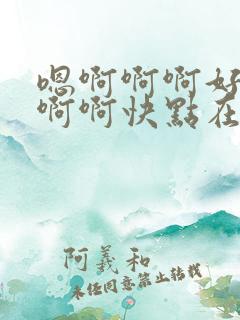 嗯啊啊啊好
啊啊快點在
阿義和
未経同意禁止转載